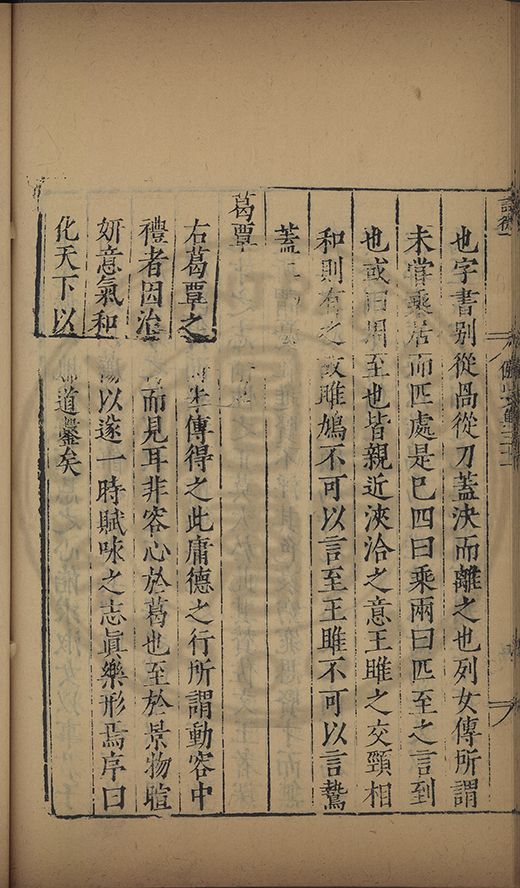 也字書别從咼從刀蓋決而離之也列女傳所謂
未嘗乘居而匹處是已四曰乘兩曰匹至之言到
也或曰至也皆親近浹洽之意王雎之交頸相
和則有之故雎鳩不可以言至王雎不可以言鷙
蓋
葛覃
右葛覃之傳得之此庸德之行所謂動容中
禮者因治而見耳非容心於葛也至於景物暄
妍意氣和以遂一時賦咏之志眞樂形焉序曰
化天下以道鑿矣